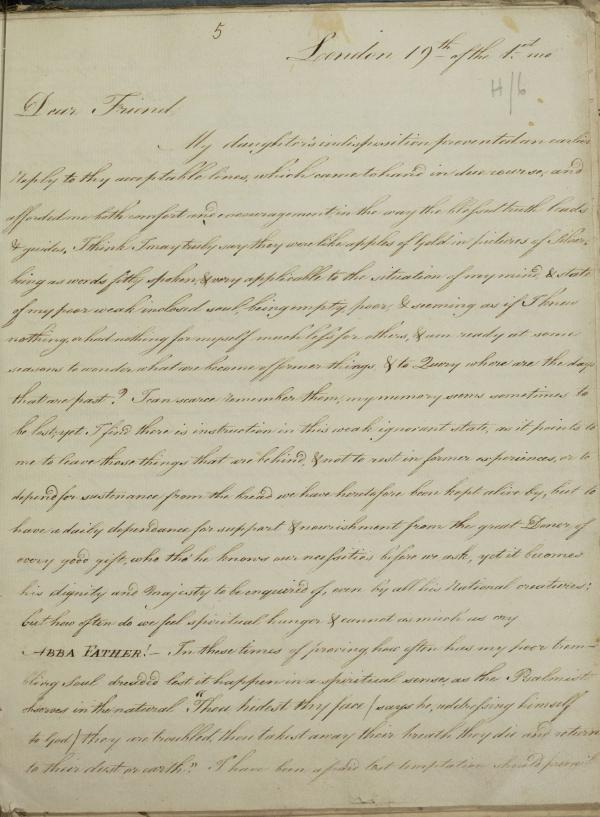 5
London 19th of the 1st mo
H/6
Dear Friend
My daughter's indisposition prevented an earlier
Reply to thy acceptable lines, which came to hand in due course, and
afforded me both comfort and encouragement in the way the blessed truth leads
& guides, I think I may truly say they were like apples of Gold in pictures of Silver,
being as words fitly spoken, & very applicable to the situation of my mind, & state
of my poor weak inclosed soul, being empty, poor, & seeming as if I knew
nothing, or had nothing for myself much less for others, & am ready at some
seasons to wonder what are become of former things, & to Query where are the days
that are past? I can scarce remember them, my memory seems sometimes to
be lost, yet I find there is instruction in this weak ignorant state, as it points to
me to leave those things that are behind, & not to rest in former experiences, or to
depend for sustenance from the bread we have heretofore been kept alive by, but to
have a daily dependance for support & nourishment from the great Doner of
every good gift, who tho' he knows our necessities before we ask, yet it becomes
his dignity and Majesty to be enquired of, even by all his National creatures:
but how often do we feel spiritual hunger & cannot as much as cry
ABBA FATHER!— In these times of proving, how often has my poor trem-
bling Soul dreaded lest it happen in a spiritual sense, as the Psalmist
observes in the natural "Thou hidest thy face (says he, addressing himself
to God) they are troubled, thou takest away their breath they die and return
to their dust or earth." I have been afraid lest temptation should prevail